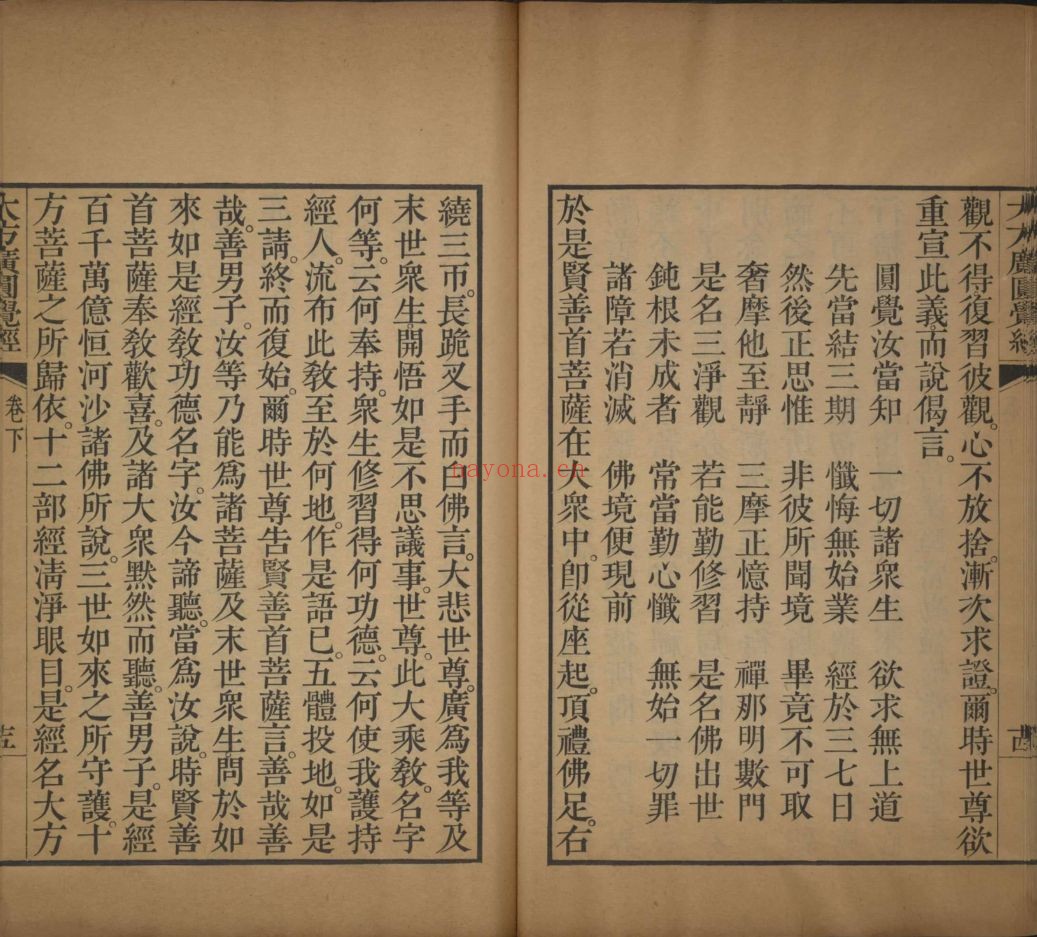 大方廣圓覺經
觀不得復習彼觀。心不放捨。漸次求證。爾時世尊欲
重宣此義。而說偈言。
圓覺汝當知　一切諸衆生　欲求無上道
先當結三期　懺悔無始業　經於三七日
然後正思惟　非彼所聞境　畢竟不可取
奢摩他至靜　三摩正憶持　禪那明數門
是名三淨觀　若能勤修習　是名佛出世
鈍根未成者　常當勤心懺　無始一切罪
諸障若消滅　佛境便現前
於是賢善首菩薩在大衆中。卽從座起。頂禮佛足。右
繞三帀。長跪叉手而白佛言。大悲世尊。廣爲我等及
末世衆生開悟如是不思議事。世尊。此大乘敎。名字
何等。云何奉持。衆生修習得何功德。云何使我護持
經人。流布此敎至於何地。作是語已。五體投地。如是
三請。終而復始。爾時世尊告賢善首菩薩言。善哉善
哉。善男子。汝等乃能爲諸菩薩及末世衆生問於如
來如是經敎。功德名字。汝今諦聽。當爲汝說。時賢善
首菩薩奉敎歡喜。及諸大衆默然而聽。善男子。是經
百千萬億恒河沙諸佛所說。三世如來之所守護。十
方菩薩之所歸依。十二部經淸淨眼目。是經名大方
大方廣圓覺經　卷下
nayona.cn